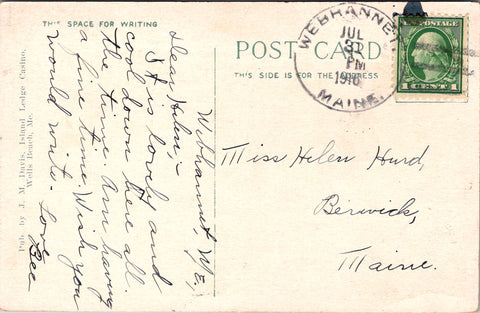 THIS SPACE FOR WRITING
POST CARD
THIS SIDE IS FOR THE ADDRESS
WEBHANNET
JUL
31
PM
1916
MAINE.
U.S. POSTAGE
1 CENT 1
Webhannet, Me.,
Dear Helen,-
It is lovely and
cool down here all
the time. Am having
a fine time. Wish you
would write. Love
Bee
Miss Helen Hurd,
Berwick,
Maine.
Pub. by J. M. Davis, Island Ledge Casino,
Wells Beach, Me.